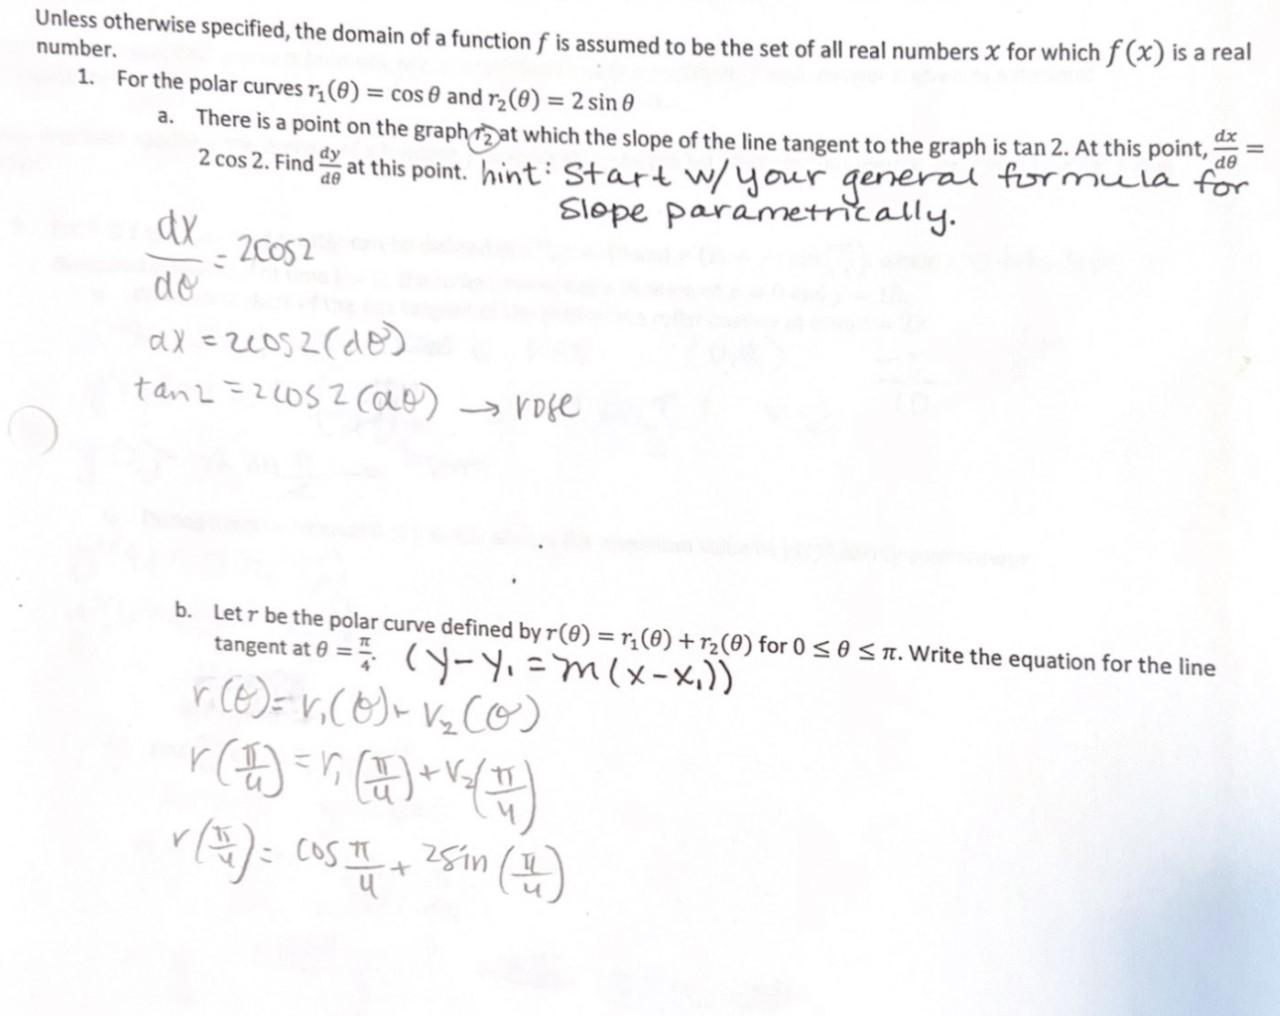 Unless otherwise specified, the domain of a function f is assumed to be the set of all real numbers x for which f(x) is a real
number.
1. For the polar curves r₁(θ) = cos θ and r₂(θ) = 2 sin θ
a. There is a point on the graph r₂ at which the slope of the line tangent to the graph is tan 2. At this point, dx/dθ =
2 cos 2. Find dy/dθ at this point. hint: Start w/ your general formula for
Slope parametrically.
dx/dθ = 2cos2
dx = 2cos2(dθ)
tan2 = 2cos2(dθ) → rose
b. Let r be the polar curve defined by r(θ) = r₁(θ) + r₂(θ) for 0 ≤ θ ≤ π. Write the equation for the line
tangent at θ = π/4. (y-y₁ = m(x-x₁))
r.(θ) = r₁(θ) + r₂(θ)
r(π/4) = r₁(π/4) + r₂(π/4)
r(π/4) = cos π/4 + 2sin(π/4)